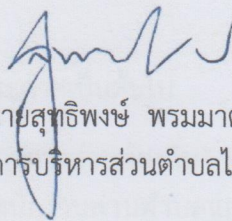 นายสุทธิพงษ์ พรมมา
การบริหารส่วนตำบลไ